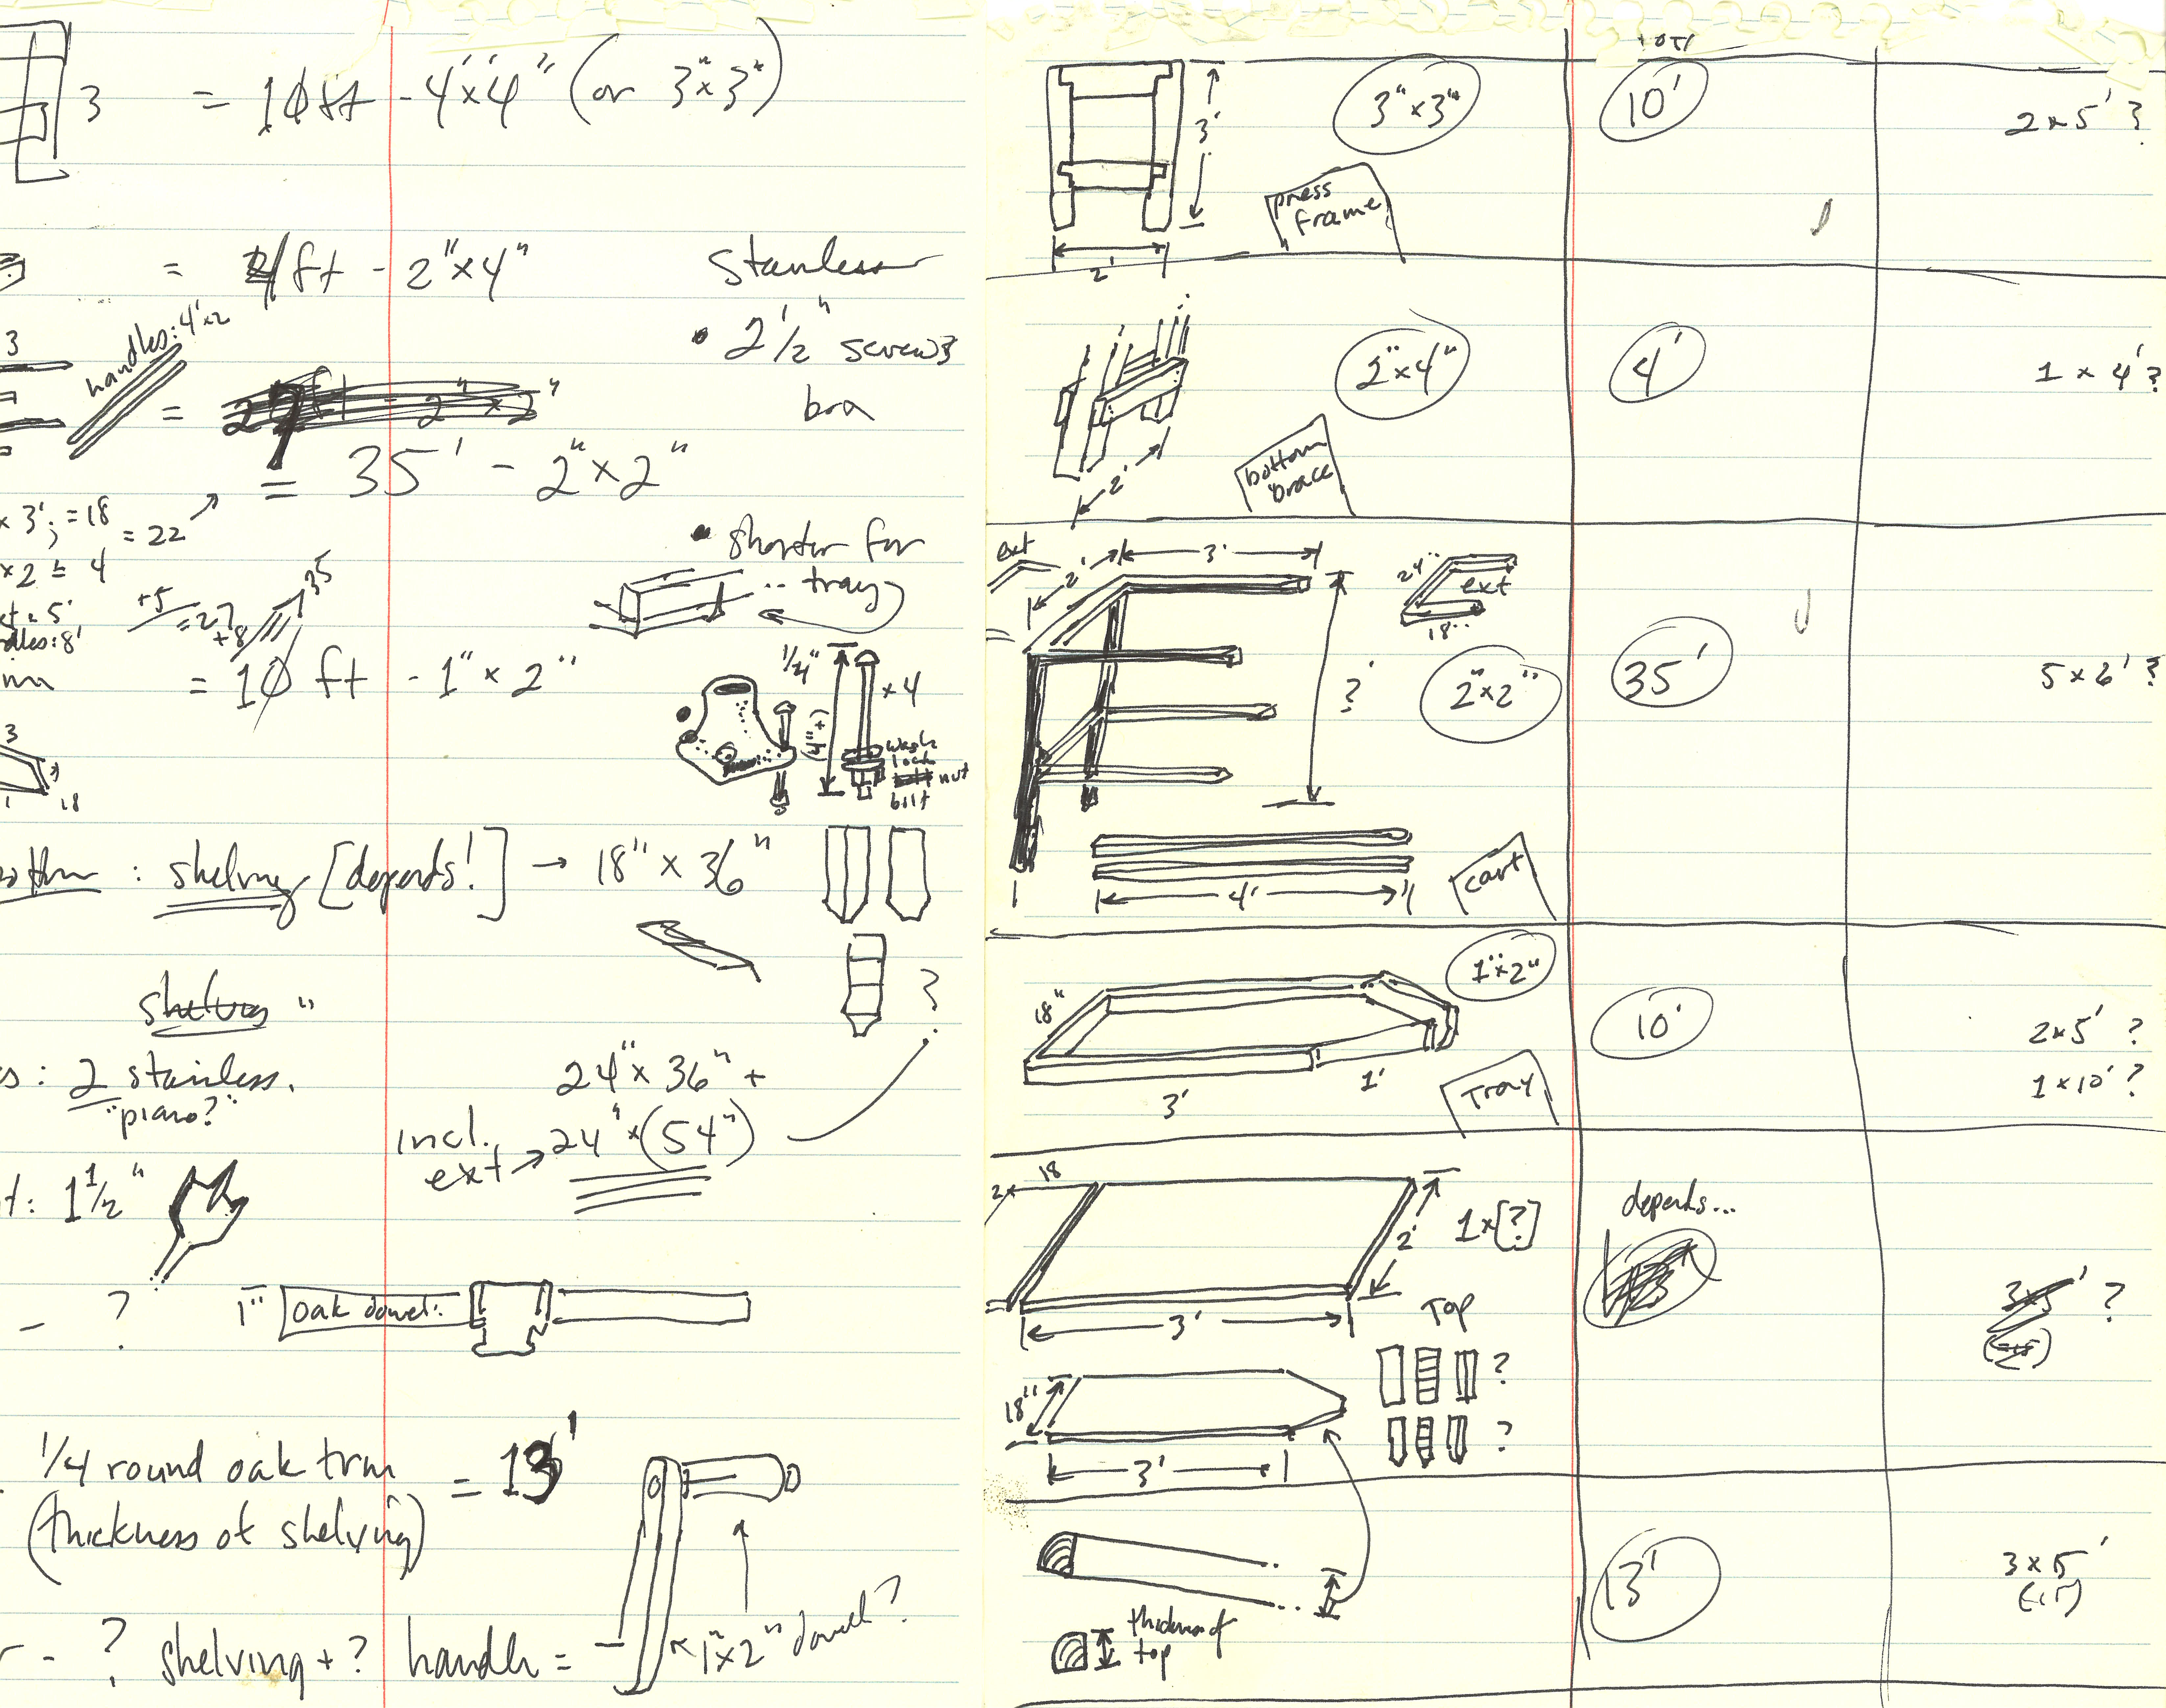 3 = 10 ft - 4"x4" (or 3"x3")
= 4 ft - 2"x4"
stainless
• 2 1/2" screws
bra
3
handles: 4'x2
=
= 35' - 2"x2"
x 3'; = 18
= 22
x2 = 4
+5
= 27
+8
35
• shorter for
tray
= 10 ft - 1"x2"
1/4"
x4
wash
lock
nut
bolt
3
18
: shelving [depends!] → 18" x 36"
shelves "
: 2 stainless.
"piano?"
24" x 36" +
incl.
ext → 24" x (54")
?
t: 1 1/2"
- ?
1" oak dowel:
1/4 round oak trim = 13'
(thickness of shelving)
- ? shelving + ? handle =
1"x2" dowel?
3'
2'
press
frame
3"x3"
10'
2x5' ?
2'
bottom
brace
2"x4"
4'
1 x 4' ?
ext
2'
3'
24"
ext
18"
?'
2"x2"
35'
5x6' ?
4'
cart
18"
3'
1'
1"x2"
Tray
10'
2x5' ?
1x10' ?
18
2x
2'
1x[?]
depends...
3x5' ?
3'
Top
?
18"
?
3'
13'
3x5'
thickness of
top